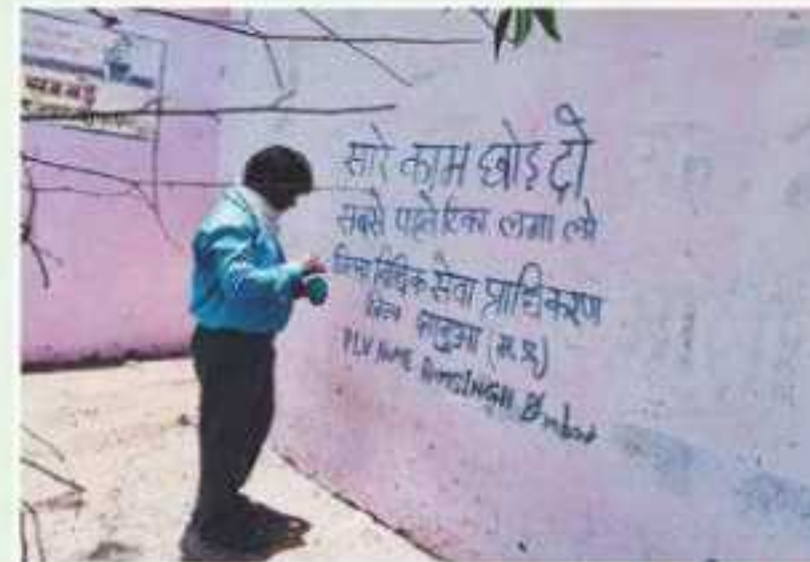 सारे काम छोड़ दो
सबसे पहले टिका लगा लो
जिला विधिक सेवा प्राधिकरण
जिला झाबुआ (म.प्र)
PLV NAME RAMSINGH